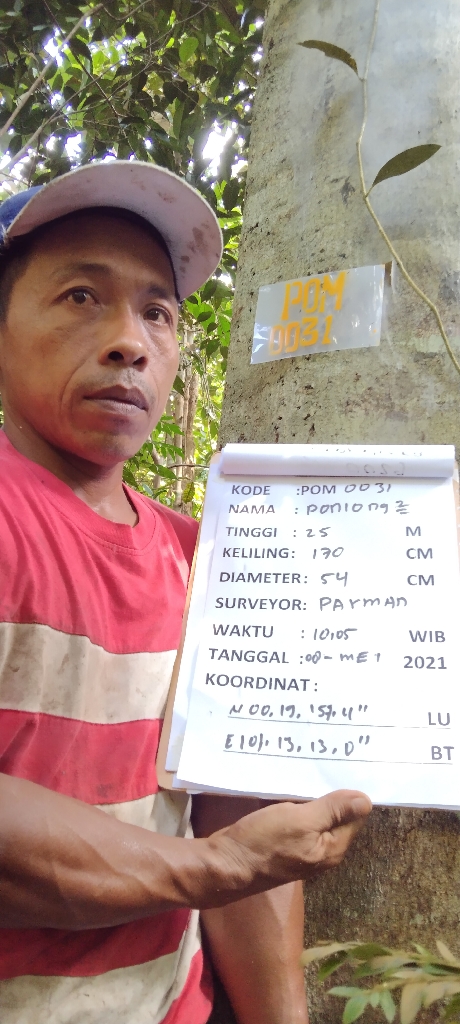 POM
0031
KODE :POM 0031
NAMA :
TINGGI : 25 M
KELILING: 170 CM
DIAMETER: 54 CM
SURVEYOR: PARMAN
WAKTU : 10,05 WIB
TANGGAL :08-MEI 2021
KOORDINAT :
N 00. 19. '57. 4" LU
E101. 13. 13. 0" BT